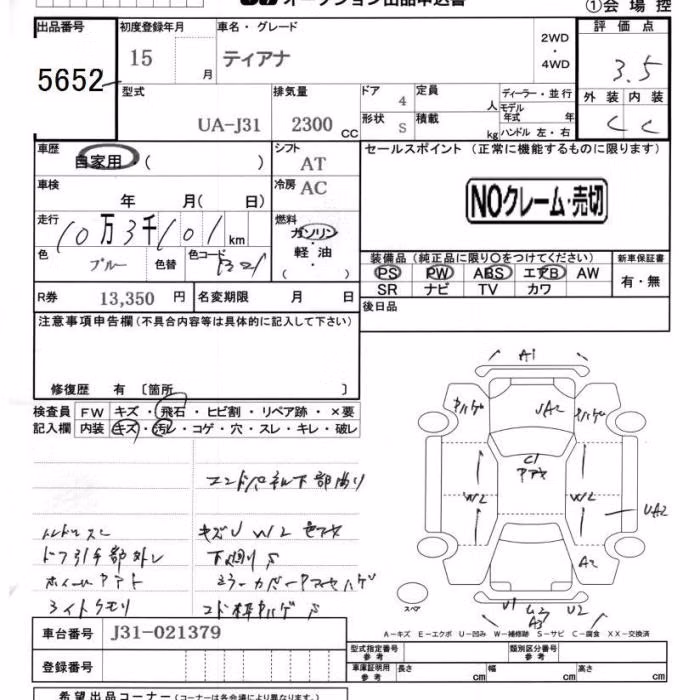 オークション出品申込書
①会場控
出品番号 初度登録年月 車名・グレード 2WD・4WD 評価点
5652 15 月 ティアナ 3.5
型式 排気量 ドア 4 定員 人 ディーラー・並行 外装 内装
UA-J31 2300 CC 形状 S 積載 kg モデル年式 年 ハンドル 左・右 C C
車歴 自家用 ( ) シフト AT セールスポイント (正常に機能するものに限ります)
車検 年 月( 日) 冷房 AC NOクレーム・売切
走行 10万3千101km 燃料 ガソリン 軽油 ( )
色 ブルー 色替 色コード
装備品 (純正品に限り○をつけてください) 新車保証書
PS PW ABS エアB AW 有・無
SR ナビ TV カワ
R券 13,350 円 名変期限 月 日 後日品
注意事項申告欄 (不具合内容等は具体的に記入して下さい)
修復歴 有 〔箇所 〕
検査員 FW キズ・飛石・ヒビ割・リペア跡・×要
記入欄 内装 キズ・汚レ・コゲ・穴・スレ・キレ・破レ
A1
UA2
C1
W2 W2
UA2
A2
U1 U2
A3
スペア
エンドパネル下部曲り
ライトクモリ
A-キズ E-エクボ U-凹み W-補修跡 S-サビ C-腐食 XX-交換済
車台番号 J31-021379 型式指定番号 参考 類別区分番号 参考
登録番号 車庫証明用 参考 長さ cm 幅 cm 高さ cm
希望出品コーナー (コーナーは各会場により異なります。)